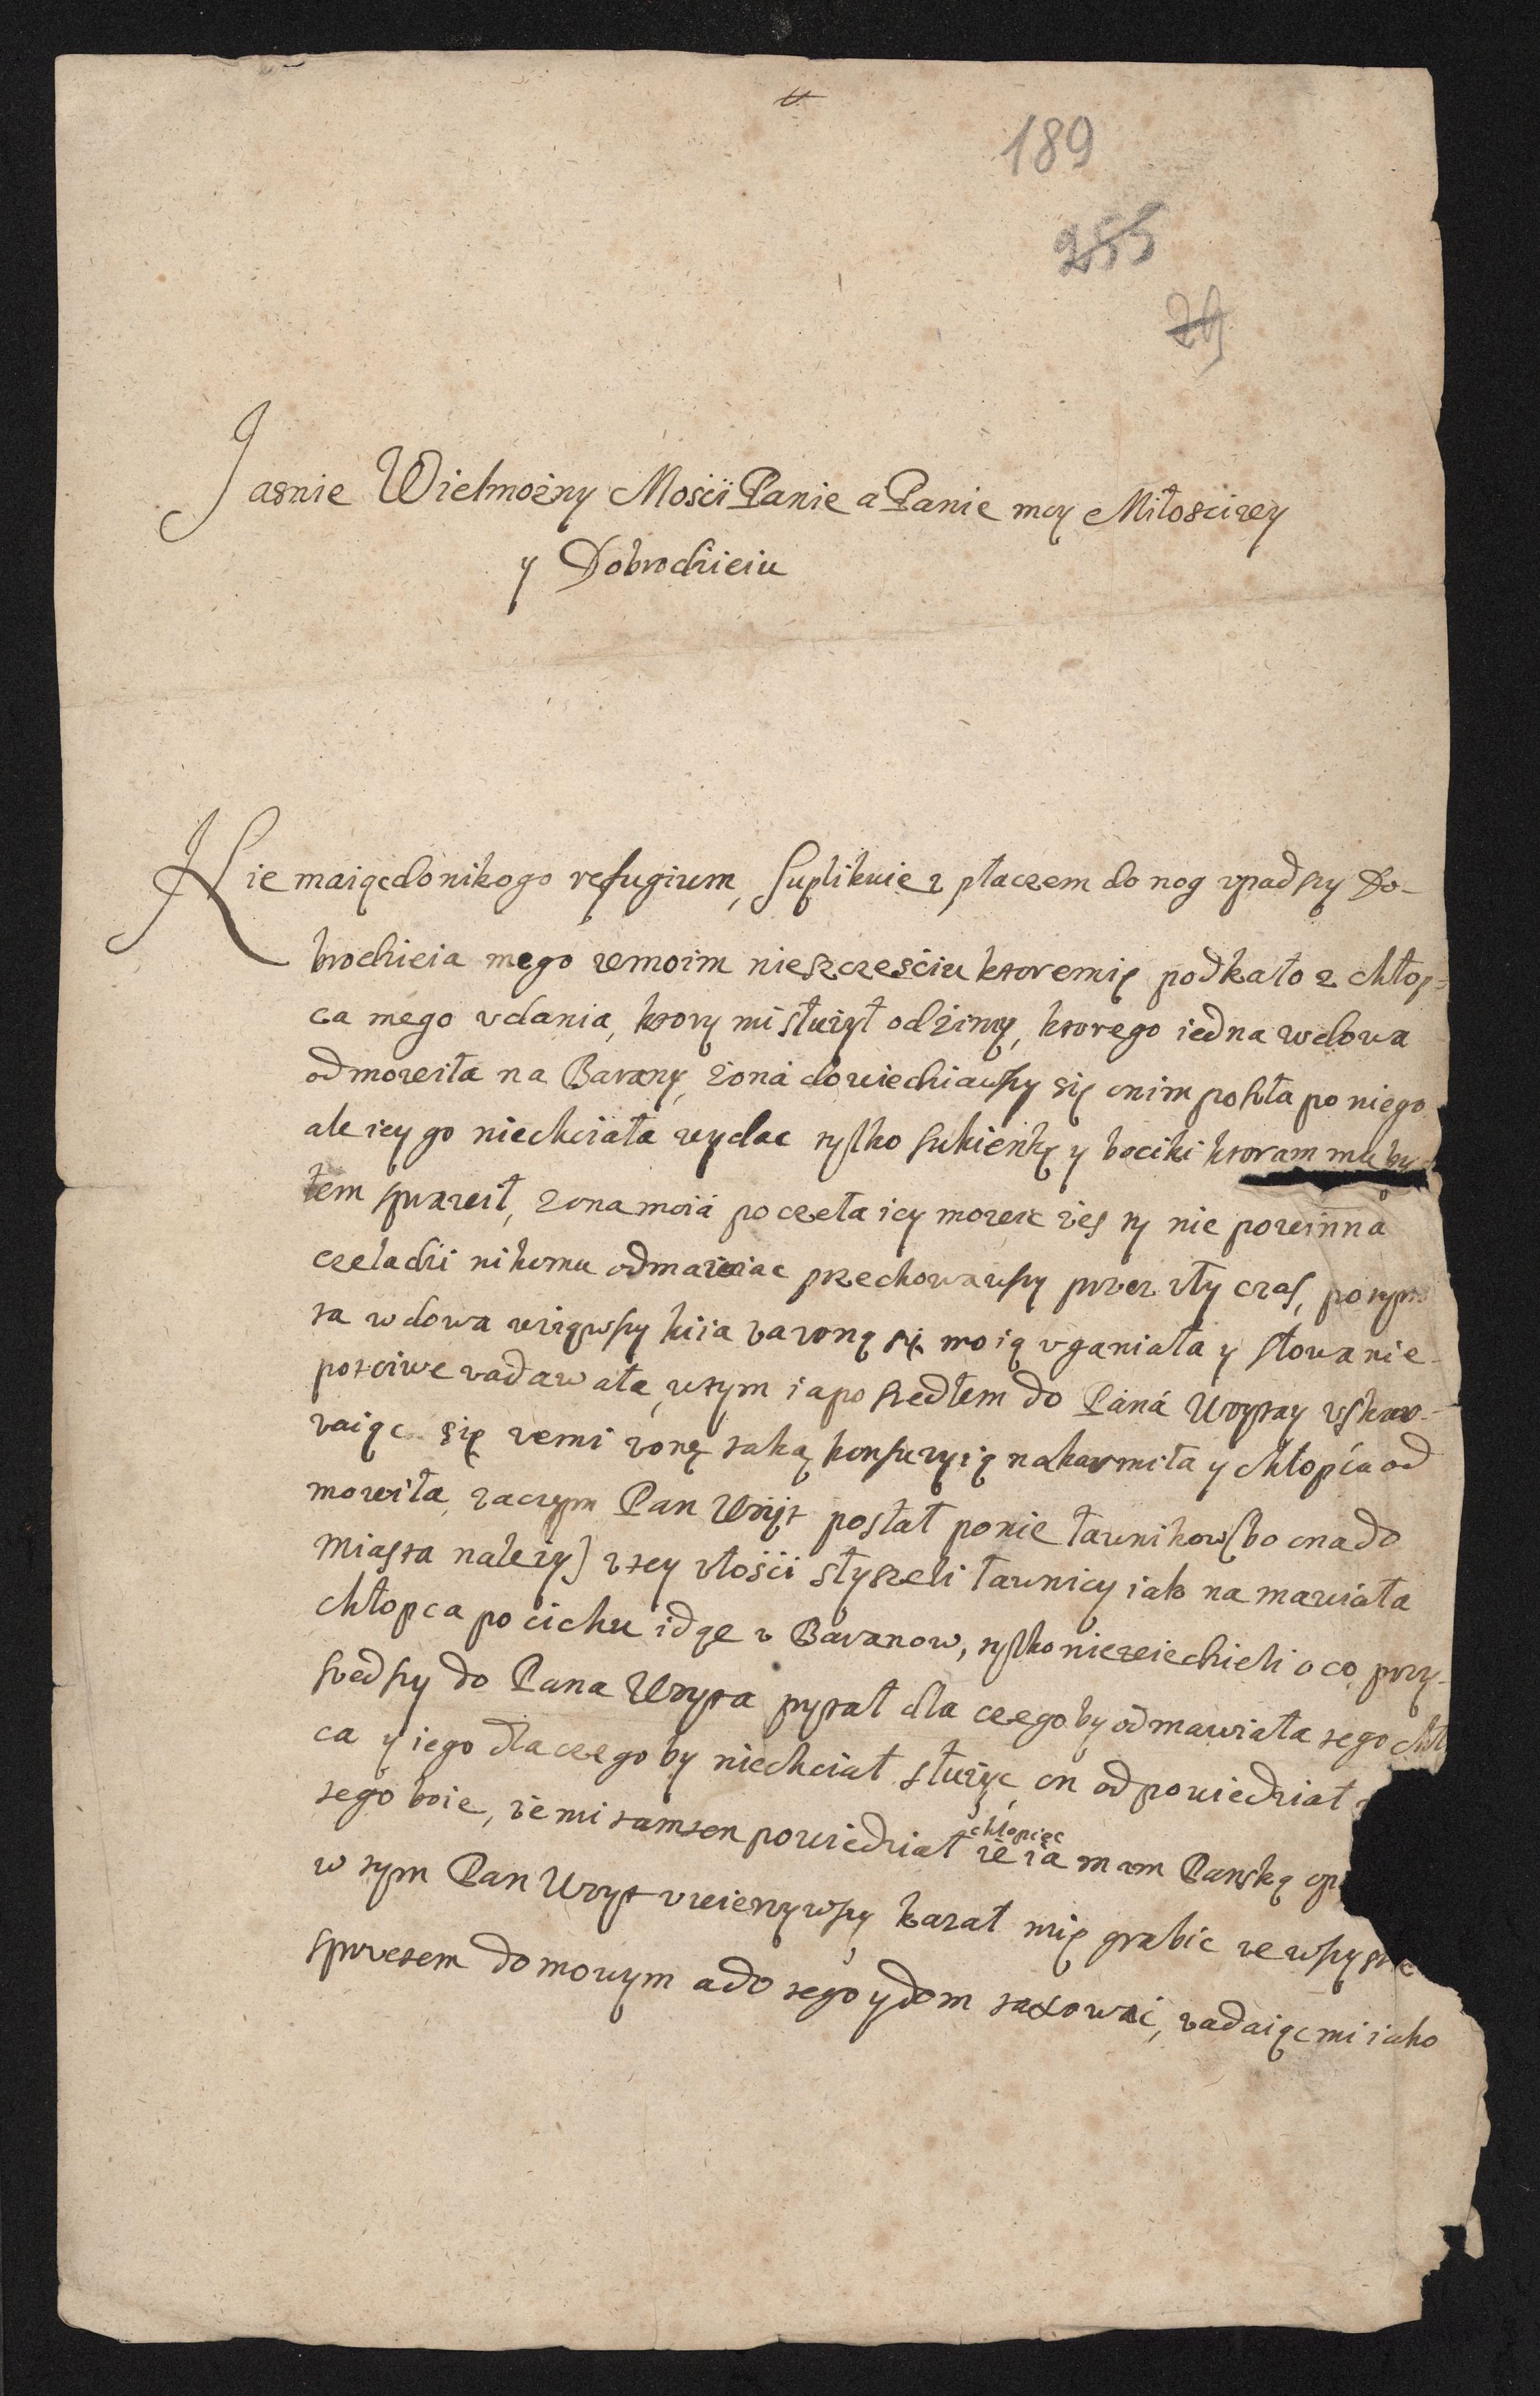 189
255
Jasnie Wielmożny Mości Panie a Panie moy Miłosciwy
y Dobrodzieiu
Nie maiąc do nikogo refugium, suplikuie z płaczem do nog vpadszy Do-
brodzieia mego w moim nieszczesciu ktore mię podkało z chłop-
ca mego vdania, ktory mi służył od zimy, ktorego iedna wdowa
odmowiła na Barany, żona dowiedziawszy się o nim poszła po niego
ale iey go niechciała wydac tylko sukienkę y bociki ktoram mu by-
łem sprawił, żona moia poczeła iey mowic żes ty nie powinna
czeladzi nikomu odmawiac przechowawszy przez zły czas, potym
ta wdowa wziąwszy kiia za żoną się moią vganiała y słowa nie-
poscciwe zadawała, wtym ia poszedłem do Pána Woyta vskar-
zaiąc się ze mi żonę taką konfuzyią nakarmiła y chłopca od
mowiła, zaczym Pan Woyt posłał po nie ławnikow [bo ona do
miasta należy] z tey złości słyszeli ławnicy iak namawiała
chłopca po cichu idąc z Baranow, tylko niewiedzieli o co, przy-
szedszy do Pana Woyta pytał dla czego by odmawiała tego chło
ca y iego dla czego by niechciał służyc, on odpowiedział
tego boie, że mi tam ten powiedział chłopiec że ia mam Panską
w tym Pan Woyt vwierzywszy kazał mię grabic ze wszystk
sprzetem domowym a do tego y dom taxowac, zadaiąc mi iako